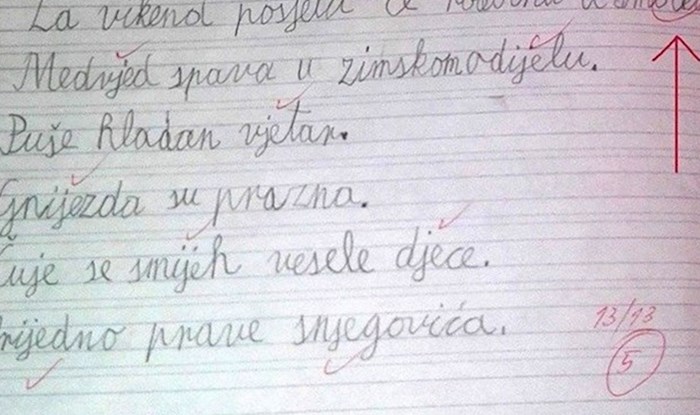 Za vikend posjeta
Medvjed spava u zimskom odijelu.
Puše hladan vjetar.
Gnijezda su prazna.
Čuje se smijeh vesele djece.
rijedno prave snjegovića.
13/13
5